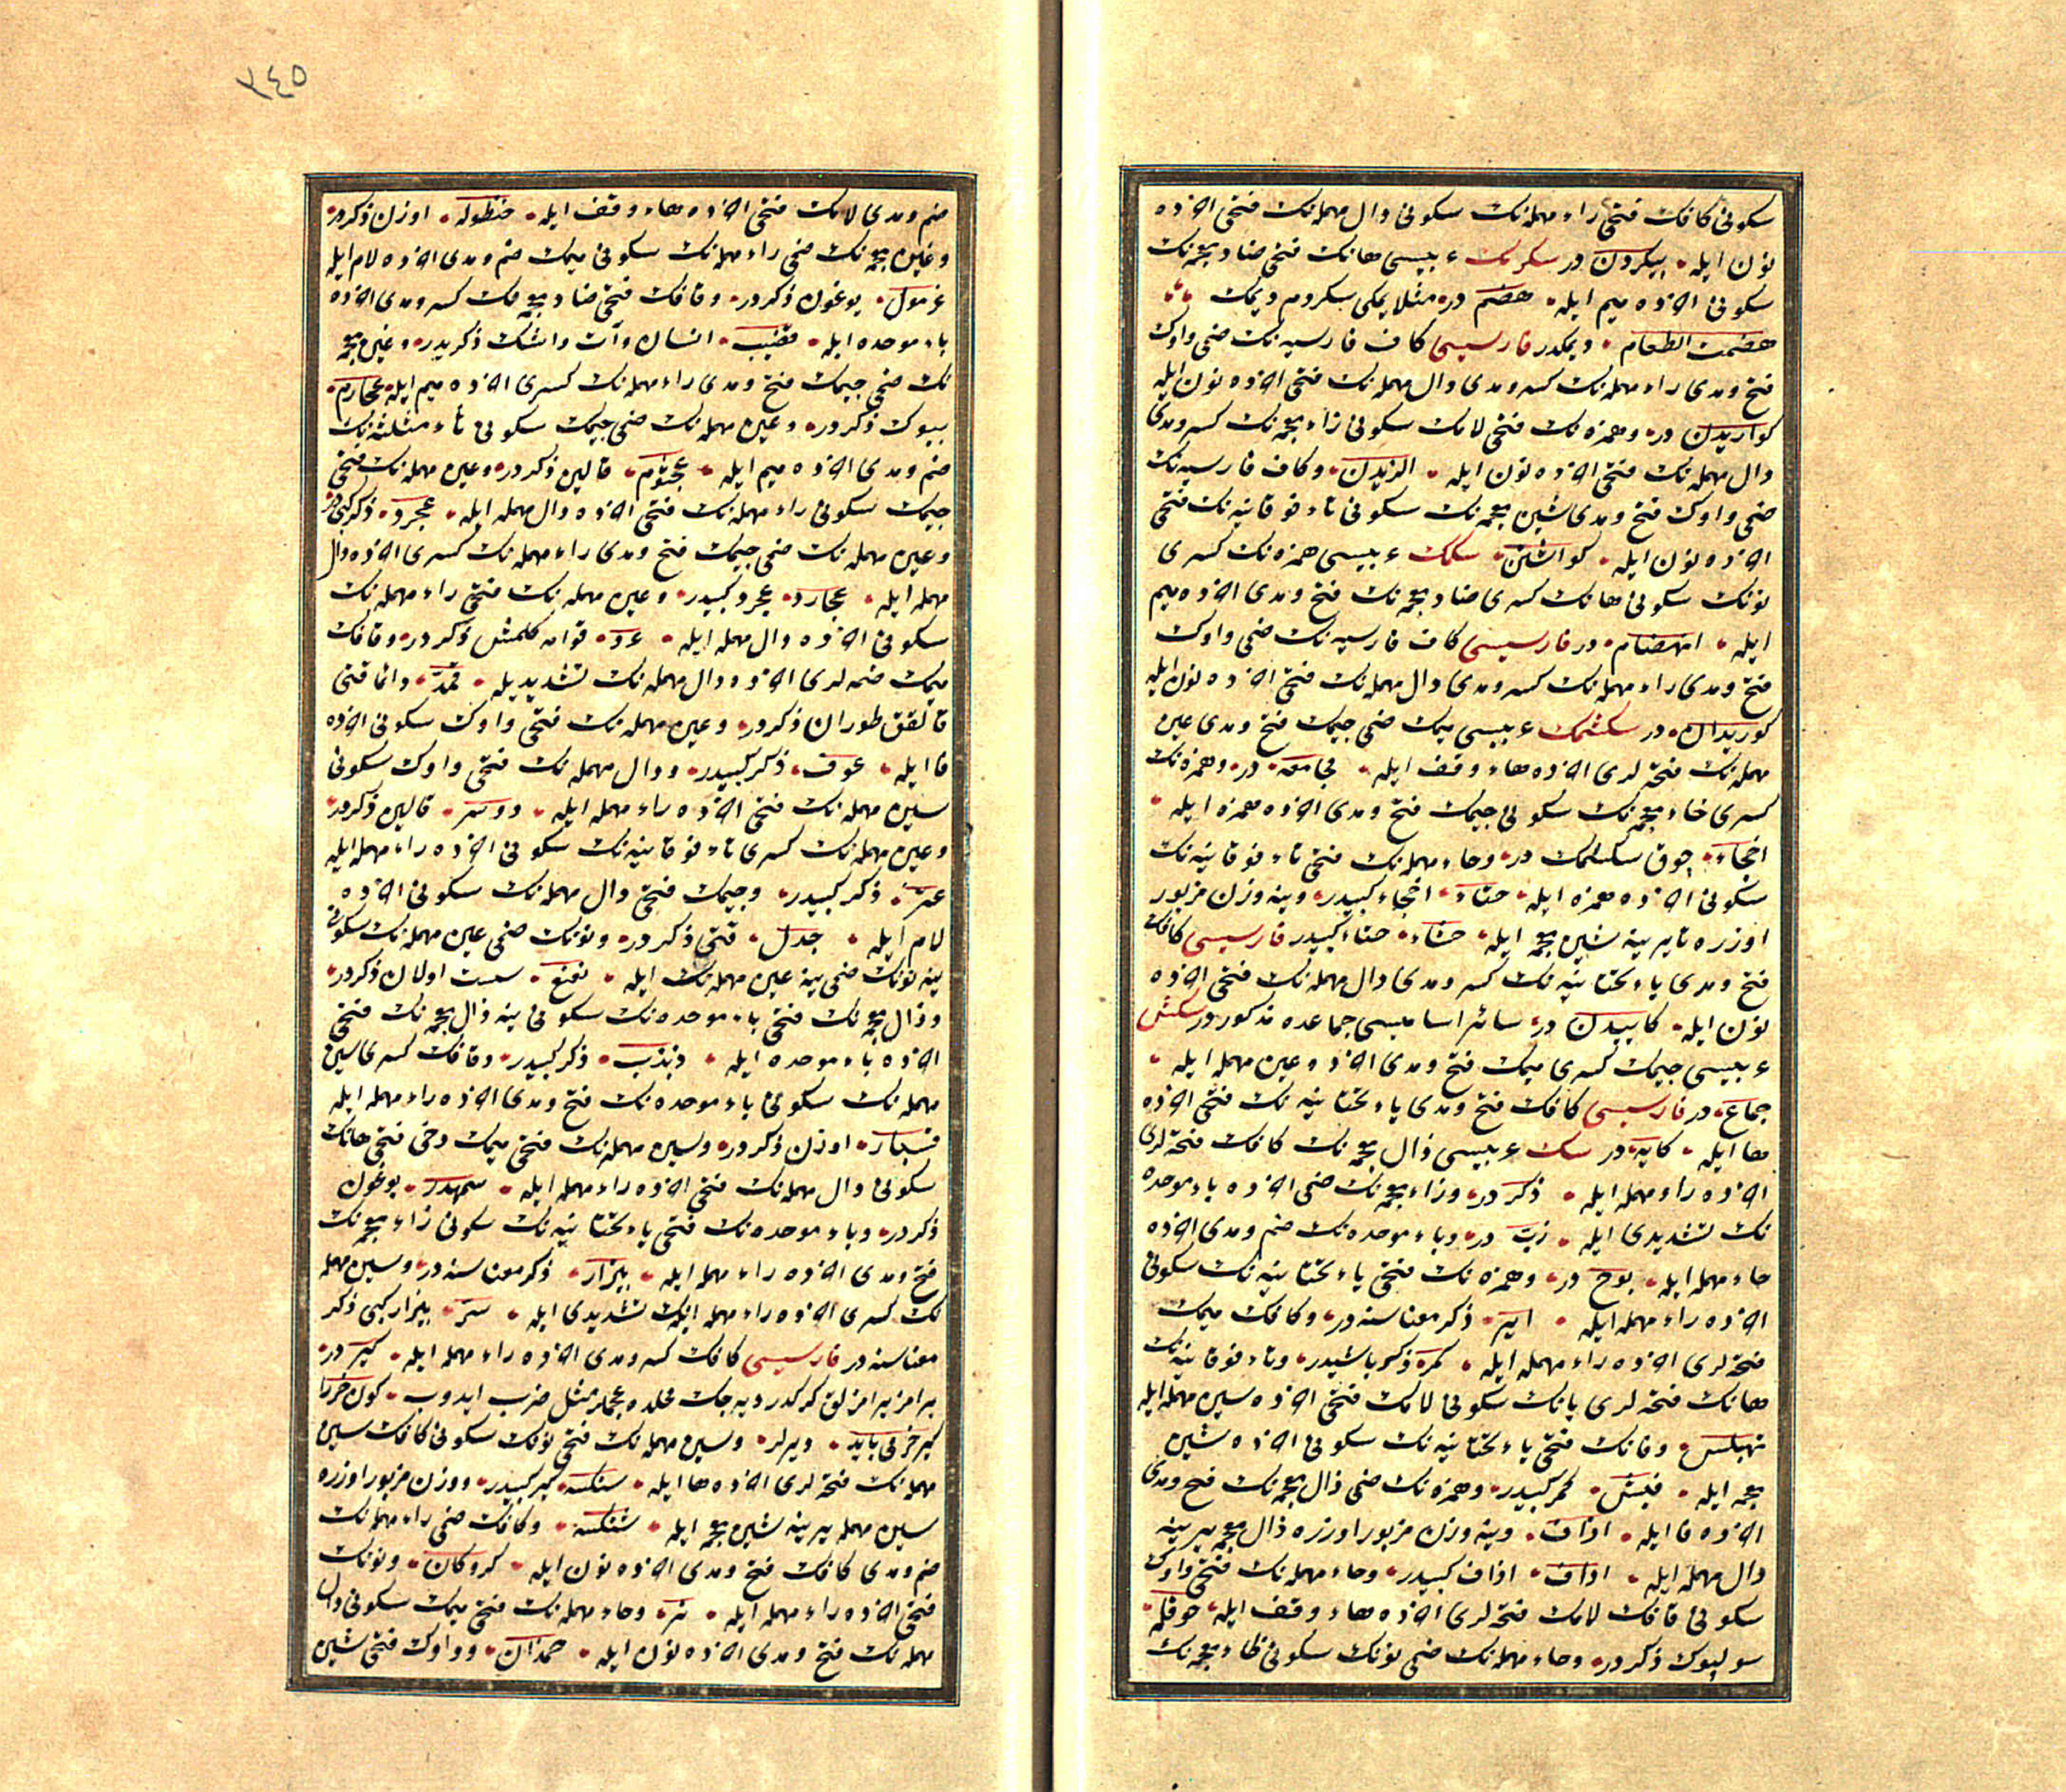 سكونی كافك فتحی راء مهمله‌نك سكونی دال مهمله‌نك فتحی اخرنده
نون ایله بیكردن در سكرمك عربیسی هانك فتحی ضاد معجمه‌نك
سكونی اخرنده میم ایله هضم در مثلا یمكی سكردم دیمك
هضمت الطعام دیمكدر فارسیسی كاف فارسیه‌نك ضمی واوك
فتح ومدی راء مهمله‌نك كسر ومدی دال مهمله‌نك فتحی اخرنده نون ایله
كواریدن در وهمزه‌نك فتحی لامك سكونی زاء معجمه‌نك كسر ومدی
دال مهمله‌نك فتحی اخرنده نون ایله الزیدن وكاف فارسیه‌نك
ضمی واوك فتح ومدی شین معجمه‌نك سكونی تاء فوقانیه‌نك فتحی
اخرنده نون ایله كواشتن سكمك عربیسی همزه‌نك كسری
نونك سكونی هانك كسری ضاد معجمه‌نك فتح ومدی اخرنده میم
ایله انهضام در فارسیسی كاف فارسیه‌نك ضمی واوك
فتح ومدی راء مهمله‌نك كسر ومدی دال مهمله‌نك فتحی اخرنده نون ایله
كوریدان در سكشمك عربیسی میمك ضمی جیمك فتح ومدی عین
مهمله‌نك فتحه‌لری اخرنده هاء وقف ایله مجامعة در وهمزه‌نك
كسری خاء معجمه‌نك سكونی جیمك فتح ومدی اخرنده همزه ایله
اخجاء چوق سكشمك در وحاء مهمله‌نك فتحی تاء فوقانیه‌نك
سكونی اخرنده همزه ایله حتاء اخجاء كبیدر وینه وزن مزبور
اوزره تا یرینه شین معجمه ایله حشاء حتاء كبیدر فارسیسی كافك
فتح ومدی یاء تحتانیه‌نك كسر ومدی دال مهمله‌نك فتحی اخرنده
نون ایله كاییدن در سائر اسامیسی جماعده مذكور در سكش
عربیسی جیمك كسری میمك فتح ومدی اخرنده عین مهمله ایله
جماع در فارسیسی كافك فتح ومدی یاء تحتانیه‌نك فتحی اخرنده
ها ایله كایه در سك عربیسی ذال معجمه‌نك كافك فتحه‌لری
اخرنده راء مهمله ایله ذكر در وزاء معجمه‌نك ضمی اخرنده باء موحده
نك تشدیدی ایله زب در وباء موحده‌نك ضم ومدی اخرنده
حاء مهمله ایله بوح در وهمزه‌نك فتحی یاء تحتانیه‌نك سكونی
اخرنده راء مهمله ایله ایر ذكر معناسنه در وكافك میمك
فتحه‌لری اخرنده راء مهمله ایله كمره ذكر باشیدر وتاء فوقانیه‌نك
هانك فتحه‌لری یانك سكونی لامك فتحی اخرنده سین مهمله ایله
تهیلس وفانك فتحی یاء تحتانیه‌نك سكونی اخرنده شین
معجمه ایله فیش كمر كبیدر وهمزه‌نك ضمی ذال معجمه‌نك فتح ومدی
اخرنده فا ایله اذاف وینه وزن مزبور اوزره ذال معجمه یرینه
دال مهمله ایله اداف اذاف كبیدر وحاء مهمله‌نك فتحی واوك
سكونی قافك لامك فتحه‌لری اخرنده هاء وقف ایله حوقله
سولپوك ذكر در وحاء مهمله‌نك ضمی نونك سكونی ظاء معجمه‌نك
٣٤٥
ضم ومدی لامك فتحی اخرنده هاء وقف ایله حنظوله اوزن ذكر در
وغین معجمه‌نك ضمی راء مهمله‌نك سكونی میمك ضم ومدی اخرنده لام ایله
غرمول یوغون ذكر در وقافك فتحی ضاد معجمه‌نك كسر ومدی اخرنده
باء موحده ایله قضیب انسان وآت واشك ذكریدر وعین مهمله
نك ضمی جیمك فتح ومدی راء مهمله‌نك كسری اخرنده میم ایله عجارم
بیوك ذكر در وعین مهمله‌نك ضمی جیمك سكونی ثاء مثلثه‌نك
ضم ومدی اخرنده میم ایله عجثوم قالین ذكر در وعین مهمله‌نك فتحی
جیمك سكونی راء مهمله‌نك فتحی اخرنده دال مهمله ایله عجرد ذكر كبی در
وعین مهمله‌نك ضمی جیمك فتح ومدی راء مهمله‌نك كسری اخرنده دال
مهمله ایله عجارد عجرد كبیدر وعین مهمله‌نك فتحی راء مهمله‌نك
سكونی اخرنده دال مهمله ایله عرد قوامه كلمش ذكر در وقافك
میمك ضمه‌لری اخرنده دال مهمله‌نك تشدیدیله قمد دائما قتی
قالقق طوران ذكر در وعین مهمله‌نك فتحی واوك سكونی اخرنده
فا ایله عوف ذكر كبیدر ودال مهمله‌نك فتحی واوك سكونی
سین مهمله‌نك فتحی اخرنده راء مهمله ایله دوسر قالین ذكر در
وعین مهمله‌نك كسری تاء فوقانیه‌نك سكونی اخرنده راء مهمله ایله
عتر ذكر كبیدر وجیمك فتحی دال مهمله‌نك سكونی اخرنده
لام ایله جدل قتی ذكر در ونونك ضمی عین مهمله‌نك سكونی
ینه نونك ضمی ینه عین مهمله‌نك ایله نعنع سست اولان ذكر در
وذال معجمه‌نك فتحی باء موحده‌نك سكونی ینه ذال معجمه‌نك فتحی
اخرنده باء موحده ایله ذبذب ذكر كبیدر وقافك كسری سین
مهمله‌نك سكونی باء موحده‌نك فتح ومدی اخرنده راء مهمله ایله
قسبار اوزن ذكر در وسین مهمله‌نك فتحی میمك دخی فتحی هانك
سكونی دال مهمله‌نك فتحی اخرنده راء مهمله ایله سمهدر یوغون
ذكر در وباء موحده‌نك فتحی یاء تحتانیه‌نك سكونی زاء معجمه‌نك
فتح ومدی اخرنده راء مهمله ایله بیزار ذكر معناسنه در وسین مهمله
نك كسری اخرنده راء مهمله‌نك تشدیدی ایله سر بیزار كبی ذكر
معناسنه در فارسیسی كافك كسر ومدی اخرنده راء مهمله ایله كیر در
یرامز یرامز لق كركدر دیه‌جك محلده عجملر مثل ضرب ایدوب كون خررا
كیر خر می باید دیرلر وسین مهمله‌نك فتحی نونك سكونی كافك سین
مهمله‌نك فتحه‌لری اخرنده ها ایله سنكسه كیر كبیدر ووزن مزبور اوزره
سین مهمله یرینه شین معجمه ایله شنكسه وكافك ضمی راء مهمله‌نك
ضم ومدی كافك فتح ومدی اخرنده نون ایله كروكان ونونك
فتحی اخرنده راء مهمله ایله نر وحاء مهمله‌نك فتحی میمك سكونی دال
مهمله‌نك فتح ومدی اخرنده نون ایله حمدان وواوك فتحی شین